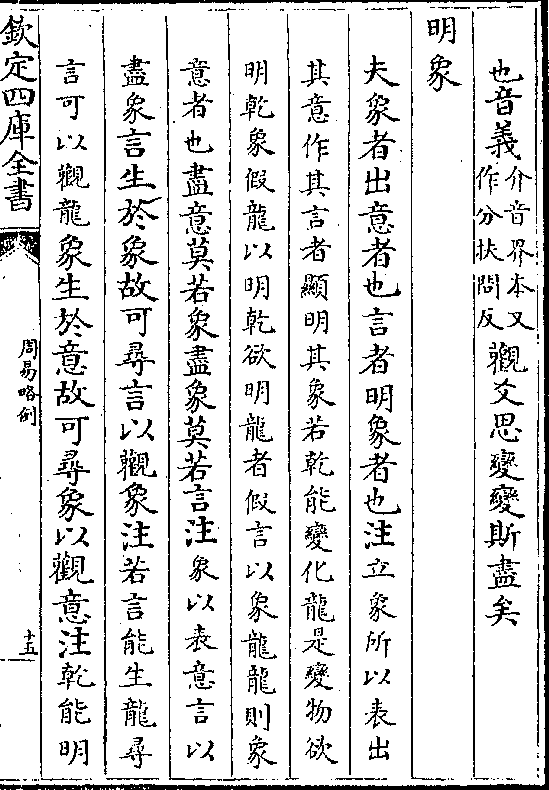 也音義介音界本又作分扶問反觀爻思變變斯盡矣
明象
夫象者出意者也言者明象者也注立象所以表出
其意作其言者顯明其象若乾能變化龍是變物欲
明乾象假龍以明乾欲明龍者假言以象龍龍則象
意者也盡意莫若象盡象莫若言注象以表意言以
盡象言生於象故可尋言以觀象注若言能生龍尋
言可以觀龍象生於意故可尋象以觀意注乾能明
欽定四庫全書
周易略例
十五